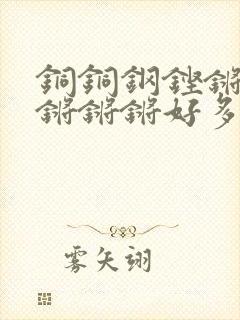 銅銅鋼鏗鏘
鏘鏘鏘好多
雾矢翊